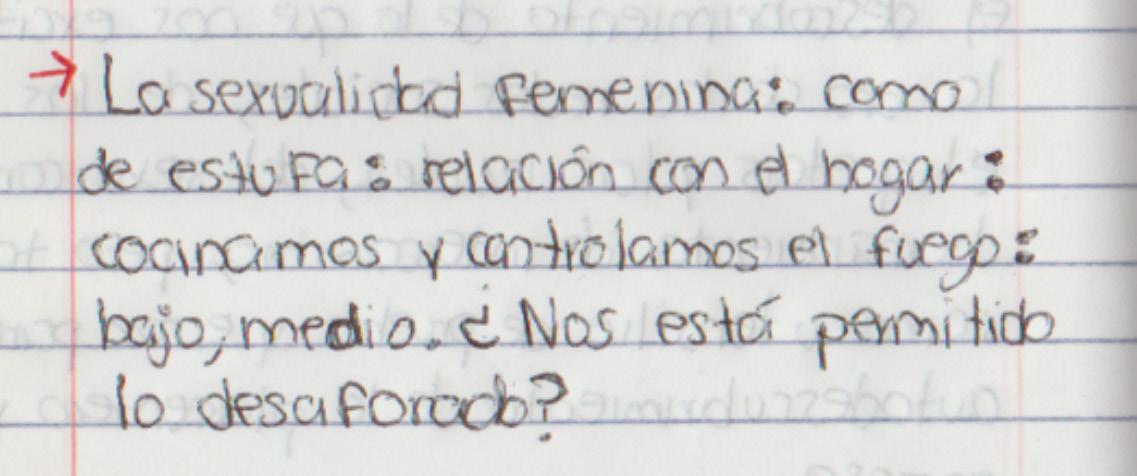 → La sexualidad femenina: como
de estufa: relación con el hogar:
cocinamos y controlamos el fuego:
bajo, medio. ¿Nos está permitido
lo desaforado?